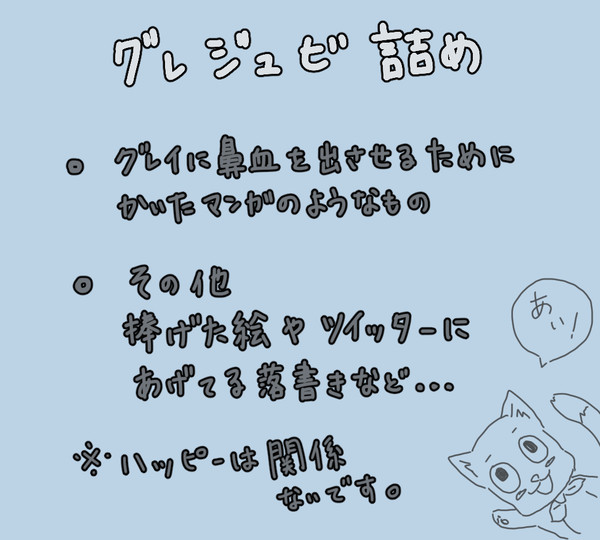 グレジュビ 詰め
○ グレイに鼻血を出させるために
かいたマンガのようなもの
○ その他
捧げた絵や ツイッターに
あげてる落書きなど...
あい!
※ ハッピーは関係
ないです。